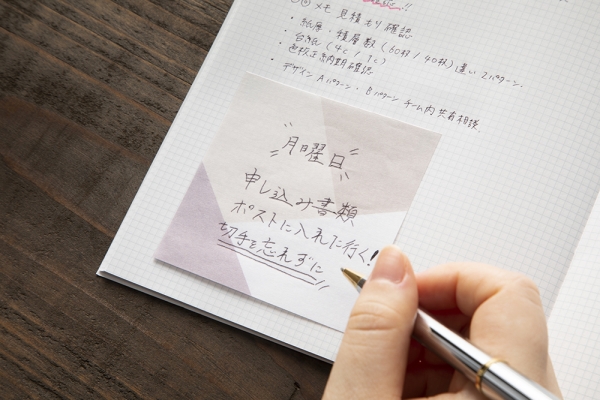 メモ 見積もり確認
・紙厚・積層数（60枚/40枚）違い 2パターン.
・台紙（4c / 1c）
・色校了納期確認
・デザイン Aパターン・Bパターン チーム内共有相談.
月曜日
申し込み書類
ポストに入れに行く!
切手を忘れずに